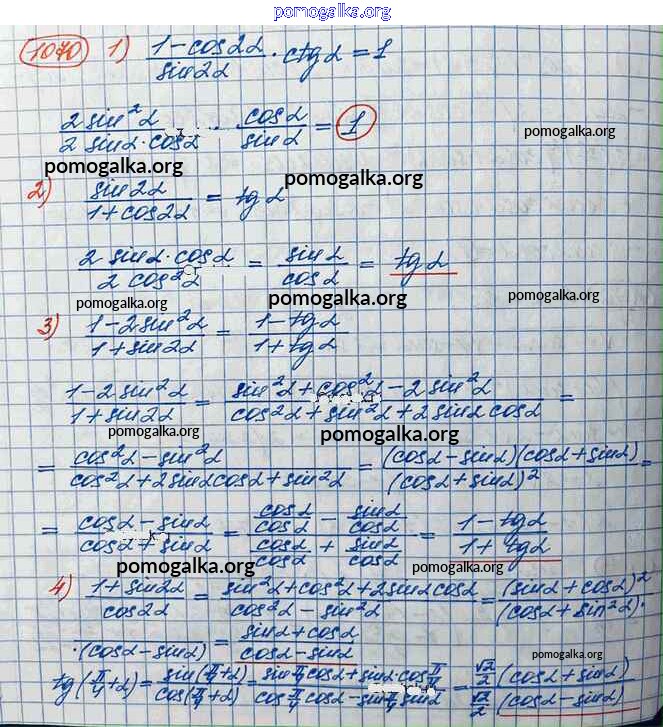 pomogalka.org
1070 1) (1-cos2α)/(sin2α) · ctgα = 1
(2sin²α)/(2 sinα·cosα) · (cosα)/(sinα) = 1
pomogalka.org
pomogalka.org
pomogalka.org
2) (sin2α)/(1+cos2α) = tgα
(2 sinα·cosα)/(2 cos²α) = (sinα)/(cosα) = tgα
pomogalka.org
pomogalka.org
pomogalka.org
3) (1-2sin²α)/(1+sin2α) = (1-tgα)/(1+tgα)
(1-2sin²α)/(1+sin2α) = (sin²α+cos²α-2sin²α)/(cos²α+sin²α+2sinαcosα) =
pomogalka.org
pomogalka.org
= (cos²α-sin²α)/(cos²α+2sinαcosα+sin²α) = ((cosα-sinα)(cosα+sinα))/((cosα+sinα)²) =
= (cosα-sinα)/(cosα+sinα) = (cosα/cosα - sinα/cosα)/(cosα/cosα + sinα/cosα) = (1-tgα)/(1+tgα)
pomogalka.org
pomogalka.org
4) (1+sin2α)/(cos2α) = (sin²α+cos²α+2sinαcosα)/(cos²α-sin²α) = (sinα+cosα)²/(cosα+sin²α)·
·(cosα-sinα) = (sinα+cosα)/(cosα-sinα)
pomogalka.org
tg(π/4+α) = sin(π/4+α)/cos(π/4+α) = (sinπ/4cosα+sinα·cosπ/4)/(cosπ/4cosα-sinπ/4sinα) = (√2/2(cosα+sinα))/(√2/2(cosα-sinα))